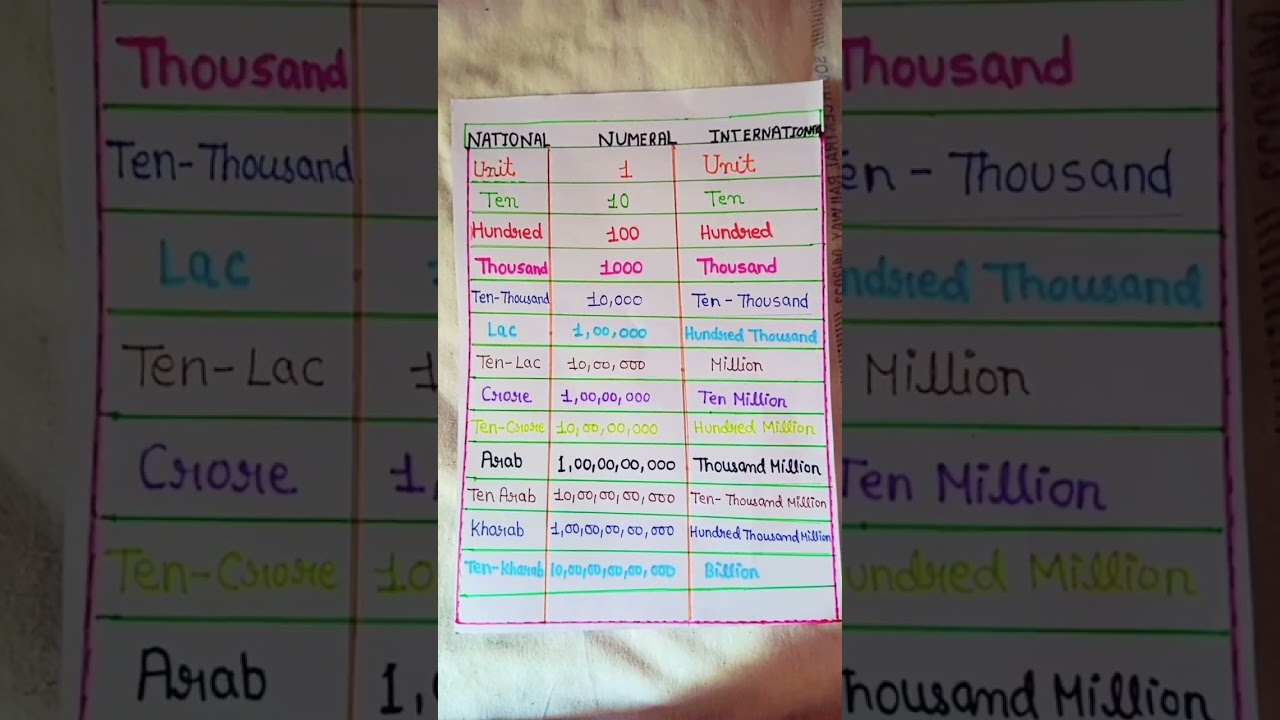 NATIONAL NUMERAL INTERNATIONAL
Unit 1 Unit
Ten 10 Ten
Hundred 100 Hundred
Thousand 1000 Thousand
Ten-Thousand 10,000 Ten - Thousand
Lac 1,00,000 Hundred Thousand
Ten-Lac 10,00,000 Million
Crore 1,00,00,000 Ten Million
Ten-Crore 10,00,00,000 Hundred Million
Arab 1,00,00,00,000 Thousand Million
Ten Arab 10,00,00,00,000 Ten- Thousand Million
Kharab 1,00,00,00,00,000 Hundred Thousand Million
Ten-Kharab 10,00,00,00,00,000 Billion